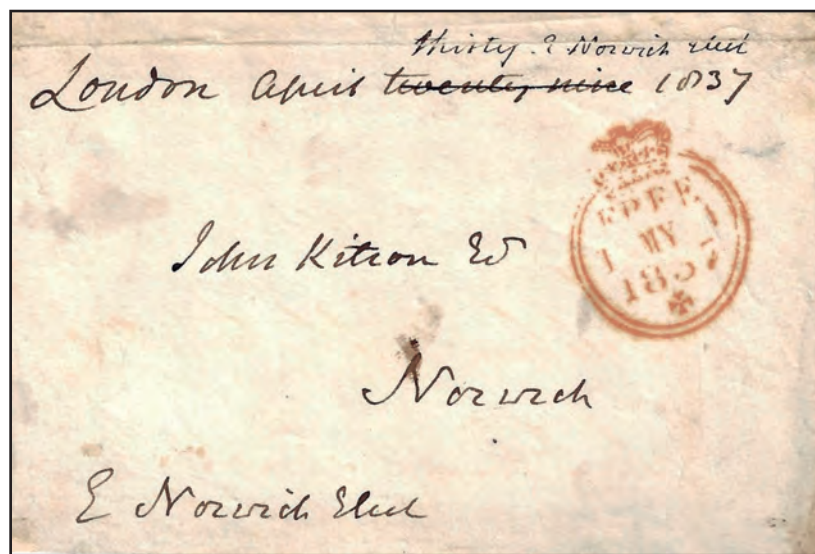 thirty E Norwich elect
London April twenty nine 1837
FREE
1 MY 1
1837
John Kitson Esq
Norwich
E Norwich Elect